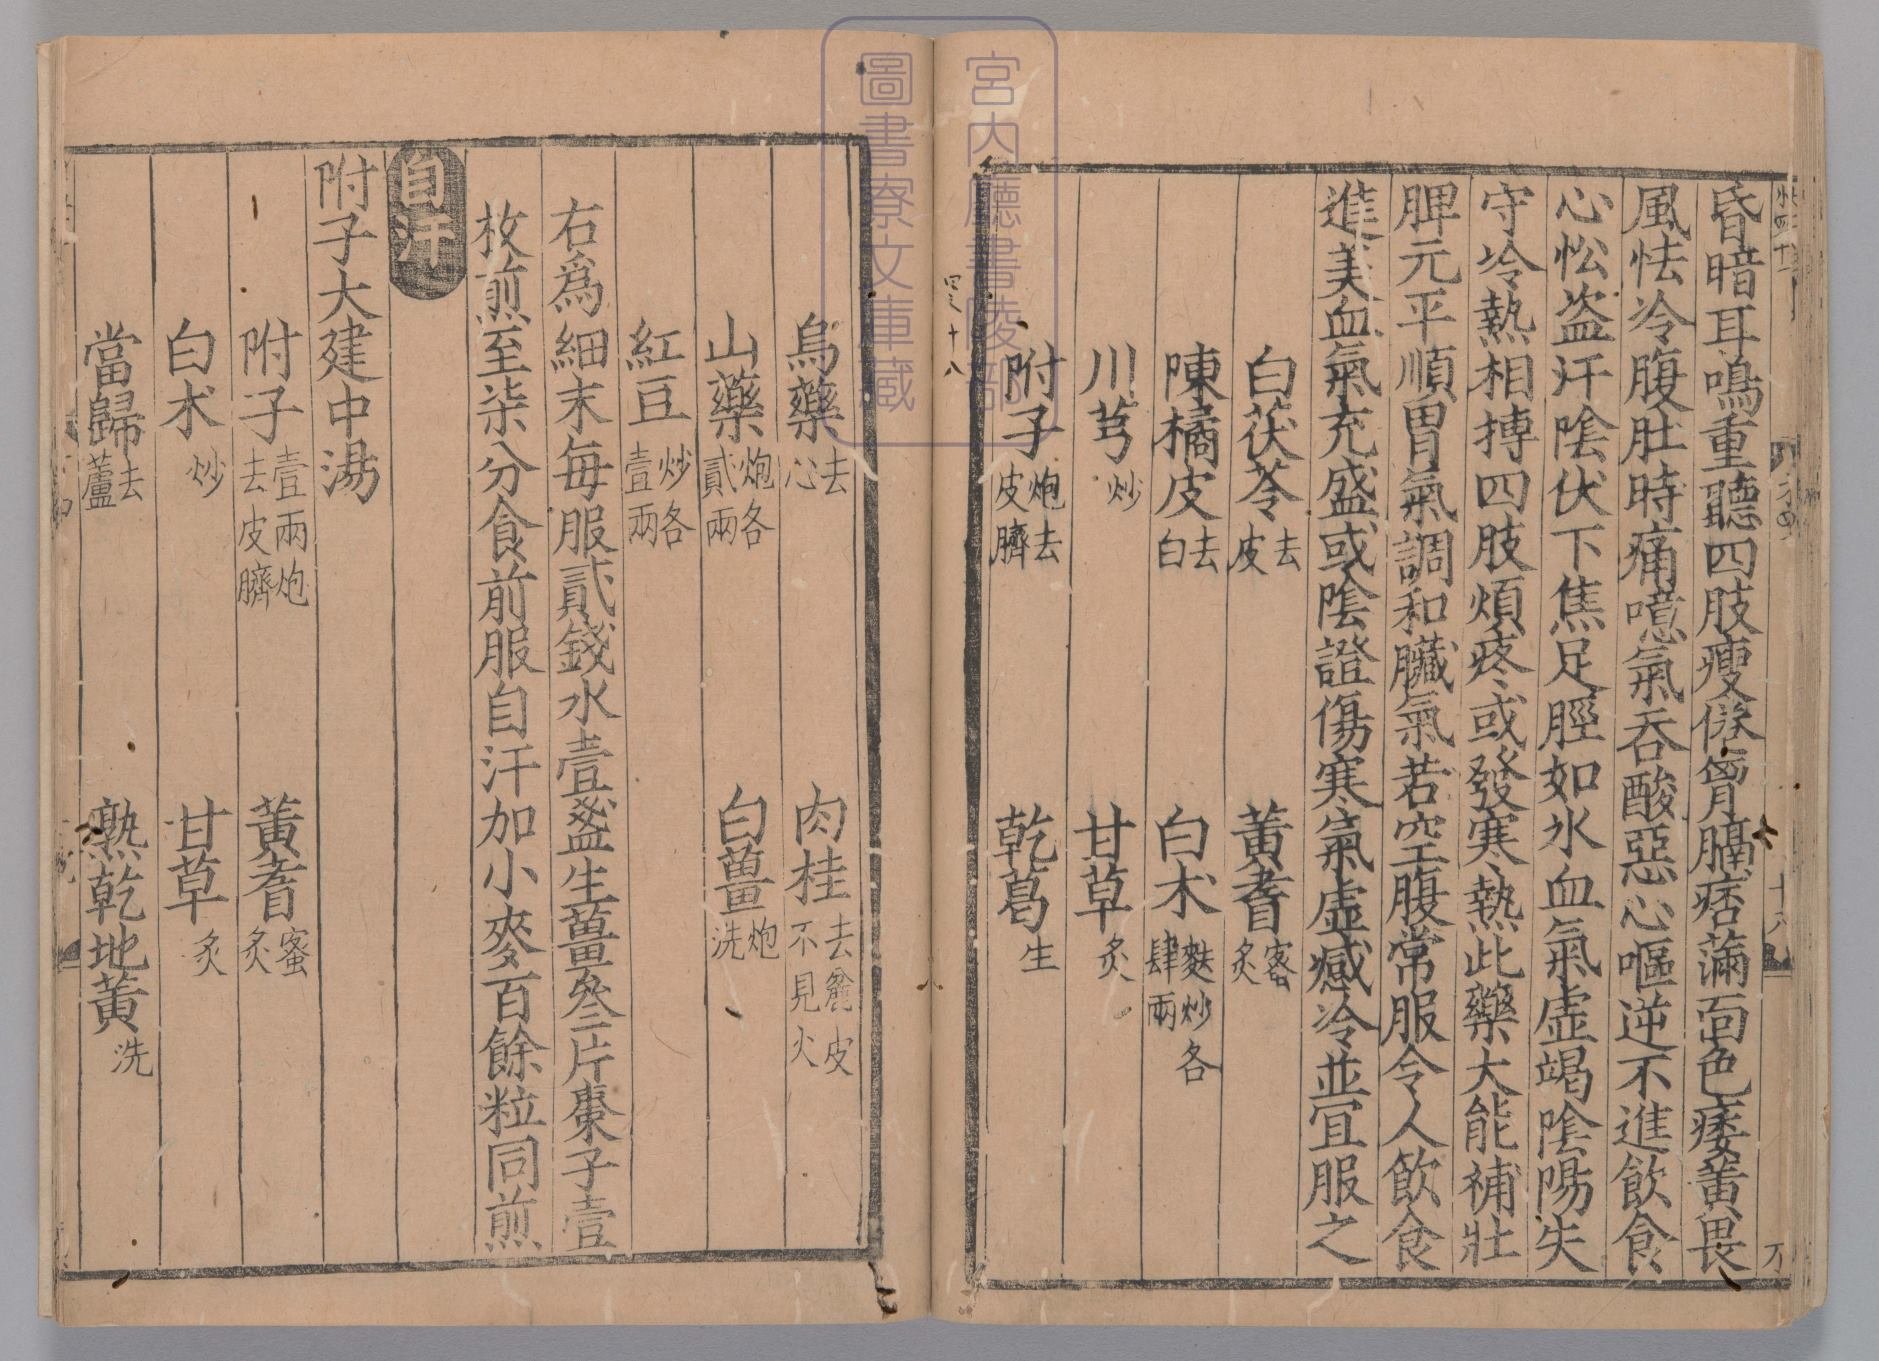 昏暗耳鳴重聽四肢瘦倦胷膈痞滿面色痿黃畏
風怯冷腹肚時痛噫氣吞酸惡心嘔逆不進飲食
心忪盗汗隂伏下焦足脛如氷血氣虛竭隂陽失
守冷熱相摶四肢煩疼或發寒熱此藥大能補壯
脾元平順胃氣調和臟氣若空腹常服令人飲食
進美血氣充盛或隂證傷寒氣虛感冷並宜服之
白茯苓去皮 黃耆蜜炙
陳橘皮去白 白术麩炒各肆兩
川芎炒 甘草炙
附子炮去皮臍 乾葛生
烏藥去心 肉桂去麄皮不見火
山藥炮各貳兩 白薑炮洗
紅豆炒各壹兩
右爲細末每服貳錢水壹盞生薑叁片棗子壹
枚煎至柒分食前服自汗加小麥百餘粒同煎
自汗
附子大建中湯
附子壹兩炮去皮臍 黃耆蜜炙
白术炒 甘草炙
當歸去蘆 熟乾地黃洗
宮内廳書陵部
圖書寮文庫蔵